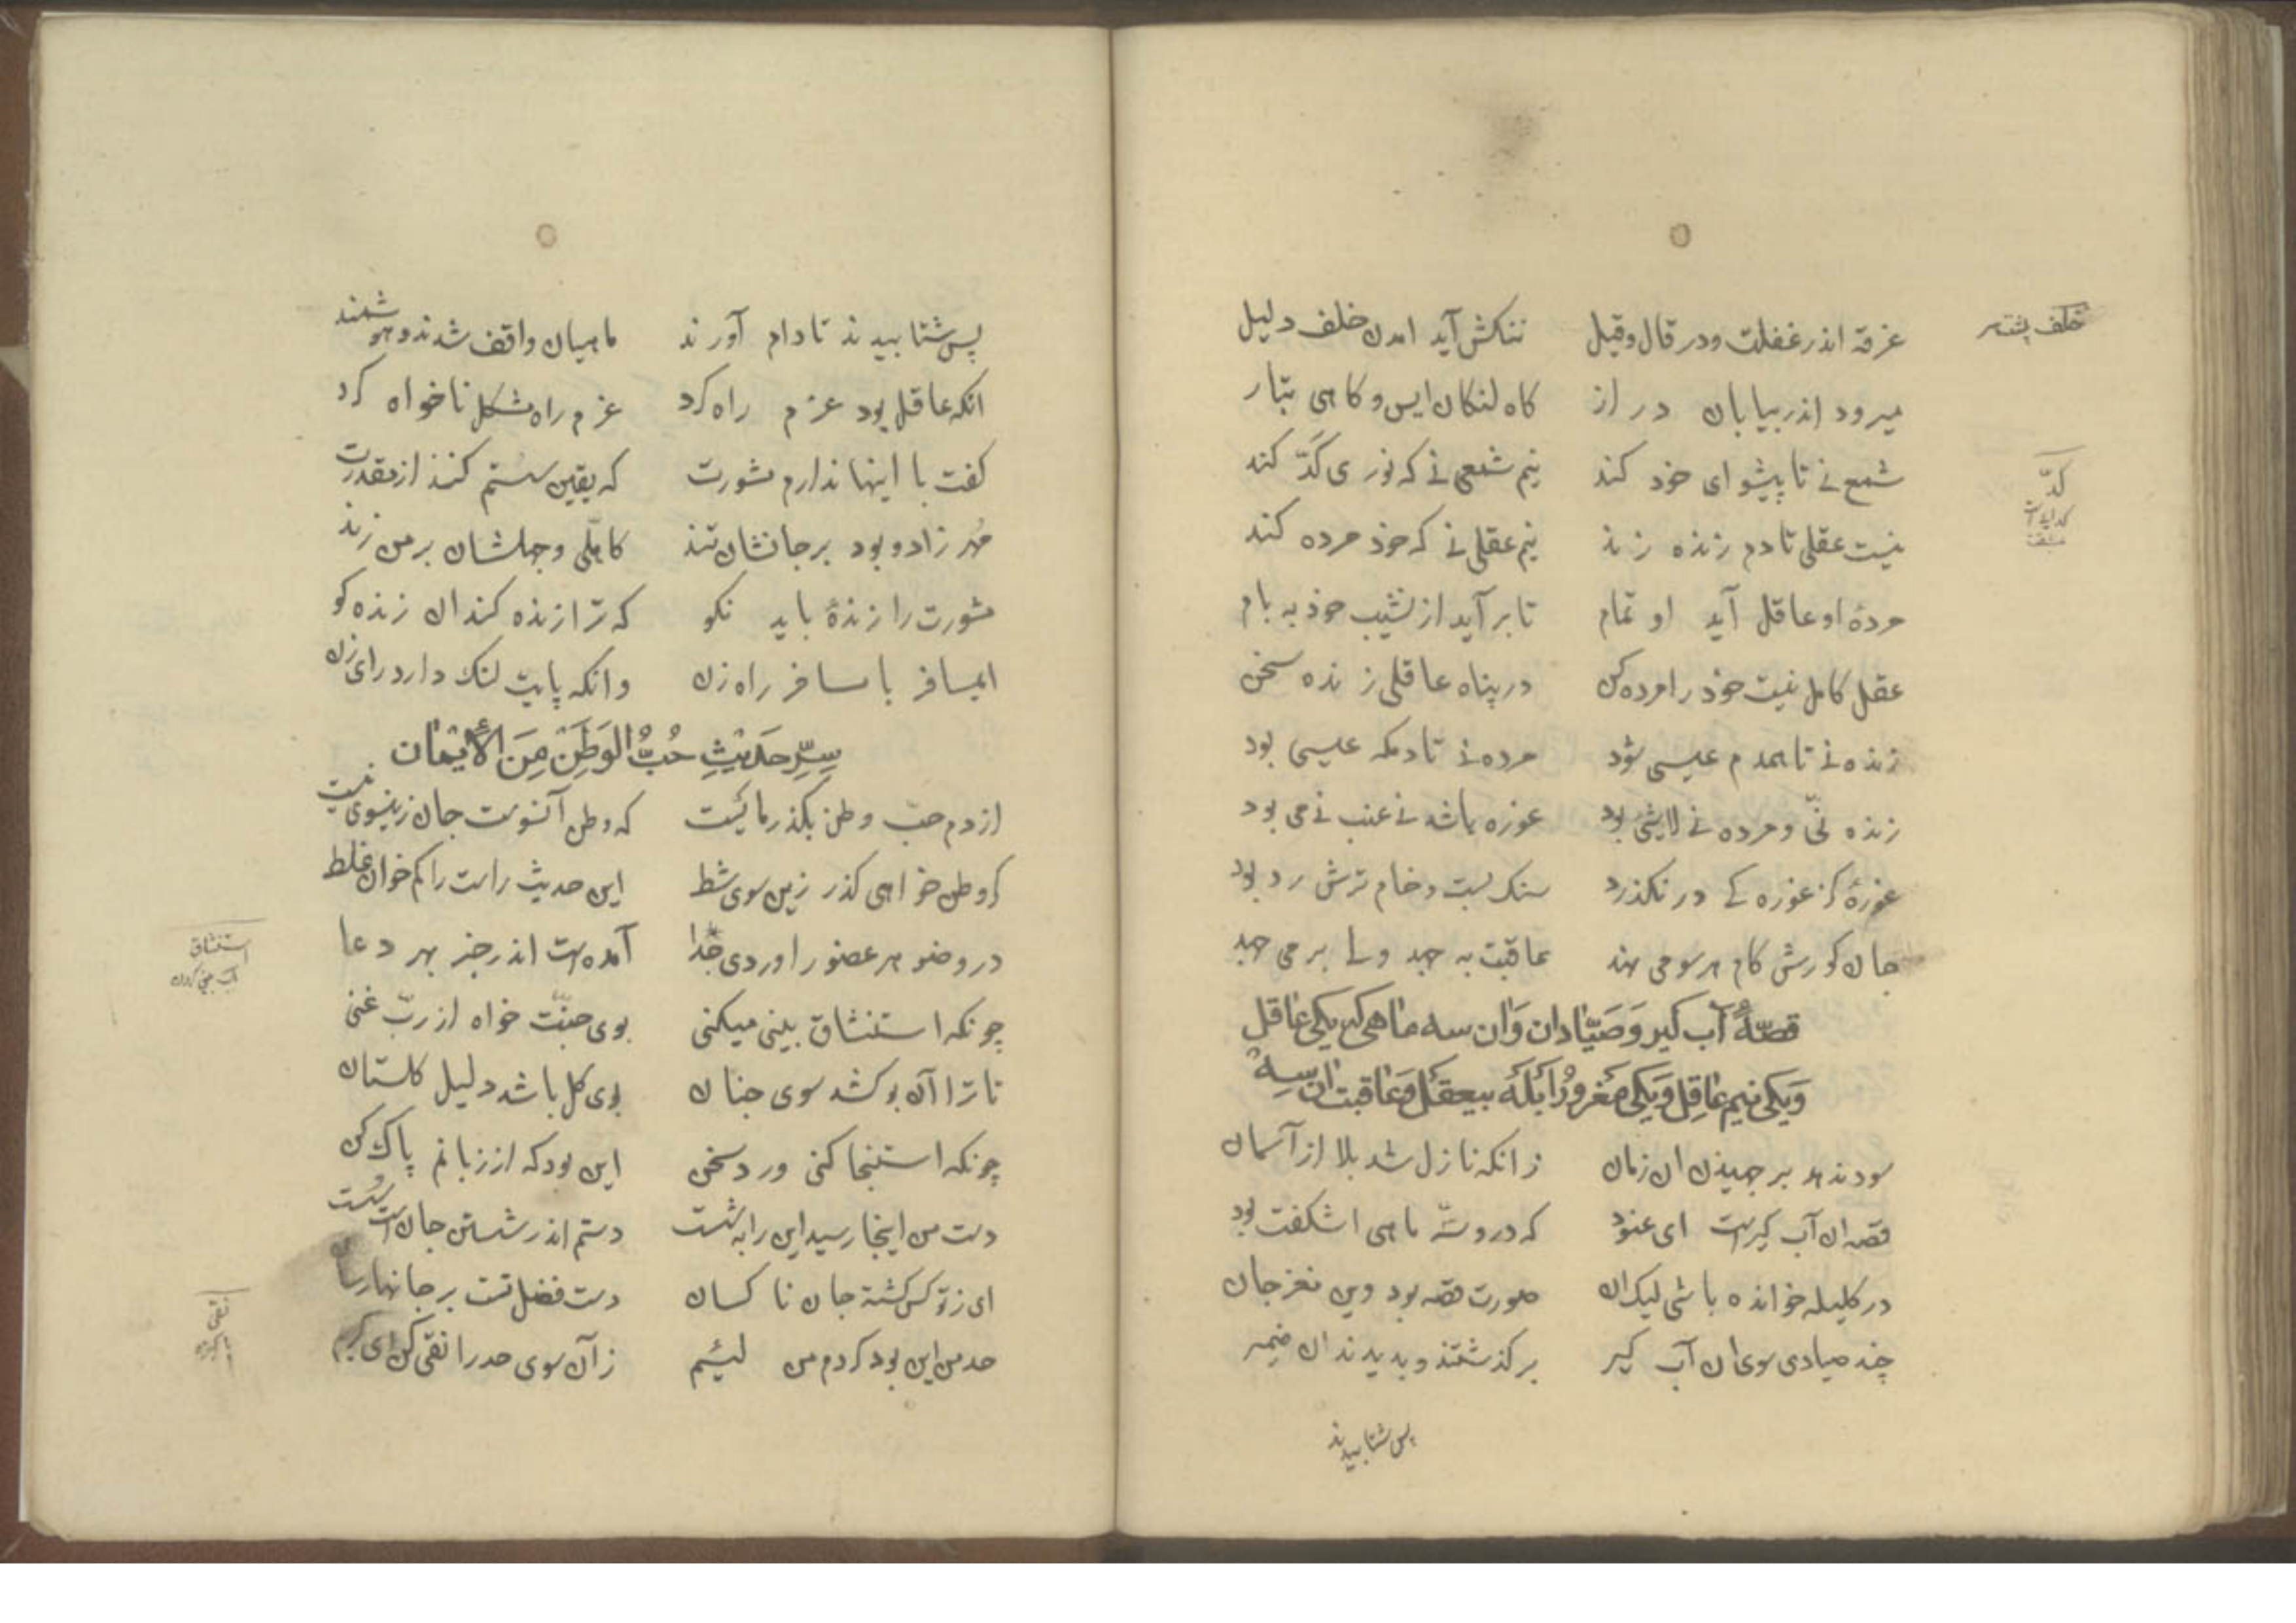 خلف پشتـ
غرقه اندر غفلت ودر قال وقیل ننکش آید امدن خلف دلیل
میرود اندر بیابان دراز کاه لنکان ایس وکاهی بتار
شمع نے تا پیشوای خود کند نیم شمعی نے که نوری کَدّ کند
کدّ
نیست عقلی تا دم زنده زند نیم عقلی نے که خود مرده کند
مردهٔ او عاقل آید او تمام تا بر آید از نشیب خود به بام
عقل کامل نیست خود را مرده کن در پناه عاقلی زنده سخن
زنده نے تا همدم عیسی شود مرده نے تا دمکه عیسی بود
زنده نیّ ومرده نے لاشیٔ بود غوره باشد نے عنب نے می بود
غورهٔ کز غوره کے در نکذرد سنک بست وخام ترش رد بود
جان کورش کام هر سو می نهد عاقبت به جهد ولے بر می جهد
قصّهٔ آب کیر وَصَیّادان وَان سه ماهی که یکی عاقل
وَیکی نیم عاقِل وَیکی مَغروُر اَبلَه بیعقل وَعاقبت ان سه
سود ندهد بر جهیدن ان زمان زانکه نازل شد بلا از آسمان
قصه ان آب کیرست ای عنود که درو سه ماهی اشکفت بود
در کلیله خوانده باشی لیک ان صورت قصه بود وین مغز جان
چند صیادی سوی ان آب کیر بر کذشتند وبدیدند ان ضمیر
پس شتابیدند
پس شتابیدند تا دام آورند ماهیان واقف شدند وهوشمند
انکه عاقل بود عزم راه کرد عزم راه مشکل ناخواه کرد
کفت با اینها ندارم مشورت که یقین سستم کنند از مقدرت
مُهر زاد وبود بر جانشان تند کاهلی وجهلشان بر من زند
مشورت را زندهٔ باید نکو که ترا زنده کند ان زنده کو
ایمسافر با مسافر راه زن وانکه پایت لنک دارد رای زن
سِرِّ حَدیثِ حُبُّ الوَطَنِ مِنَ الأیمٰان
از دم حبّ وطن بکذر مائیست که وطن آنسوست جان زینسوی نیست
کر وطن خواهی کذر زین سوی شط این حدیث راست را کم خوان غلط
در وضو هر عضو را وردی جدا آمدست اندر خبر بهر دعا
استنشاق
آب بینی کردن
چونکه استنشاق بینی میکنی بوی جنّت خواه از ربّ غنی
تا ترا آن بو کشد سوی جنان بوی کل باشد دلیل کلستان
چونکه استنجا کنی ورد سخن این بود که از زبانم پاک کن
دست من اینجا رسید این را بشست دستم اندر شستن جان است سُست
ای ز تو کس کشته جان ناکسان دست فضل تست بر جانها رسان
حد من این بود کردم من لئیم زآن سوی حد را نقی کن ای کریم
نقی